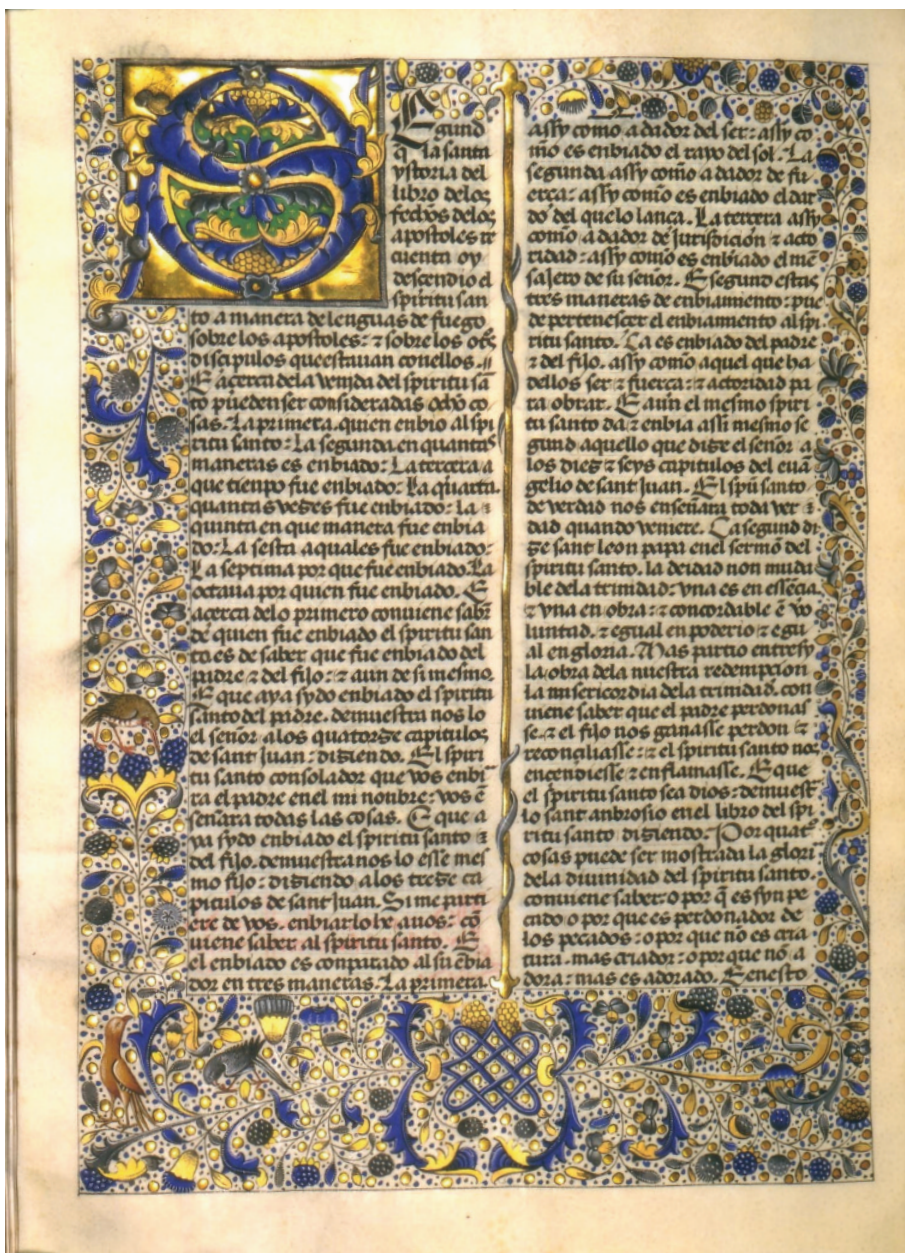 S
Egund
q̃ la santa
ystoria del
libro delos
fechos delos
apostoles re
cuenta oy
descendio el
spiritu san
to a manera de lenguas de fuego
sobre los apostoles: ⁊ sobre los otͦs
discipulos que estauan conellos.
E acerca dela venida del spiritu sã
to pueden ser consideradas ocho co
sas. La primera. quien enbio al spi
ritu santo: La segunda en quantas
maneras es enbiado: La tercera a
que tienpo fue enbiado: La quarta.
quantas vezes fue enbiado: la
quinta en que manera fue enbia
do: La sesta a quales fue enbiado:
La septima por que fue enbiado. La
octaua por quien fue enbiado. E
acerca delo primero conuiene sabr̃
de quien fue enbiado el spiritu san
to es de saber que fue enbiado del
padre ⁊ del fijo: ⁊ aun de si mesmo.
E que aya sydo enbiado el spiritu
santo del padre. demuestra nos lo
el señor alos quatorze capitulos
de sant Juan: diziendo. El spiri
tu santo consolador que vos enbi
ra el padre en el mi nonbre: vos ẽ
señara todas las cosas. E que a
ya sydo enbiado el spiritu santo ⁊
del fijo. demuestra nos lo esse mes
mo fijo: diziendo alos treze ca
pitulos de sant Juan. Si me parti
ere de vos. enbiarlo he auos: cõ
uiene saber al spiritu santo. E
el enbiado es conparado al su ẽbia
dor en tres maneras. La primera.
assy como a dador del ser: assy co
mo es enbiado el rayo del sol. La
segunda assy como a dador de fu
erca: assy como es enbiado el dar
do del que lo lanca. La tercera assy
como a dador de jurisdicion ⁊ acto
ridad: assy como es enbiado el mẽ
sajero de su señor. E segund estas
tres maneras de enbiamiento: pue
de pertenescer el enbiamiento al spi
ritu santo. Ca es enbiado del padre
⁊ del fijo. assy como aquel que ha
dellos ser ⁊ fuerca: ⁊ actoridad pa
ra obrar. E aun el mesmo spiri
tu santo da ⁊ enbia assi mesmo se
gund aquello que dize el señor a
los diez ⁊ seys capitulos del euã
gelio de sant Juan. El spũ santo
de verdad nos enseñara toda ver
dad quando veniere. Ca segund di
ze sant leon papa en el sermõ del
spiritu santo. la deidad non muda
ble dela trinidad: vna es en essẽcia
⁊ vna en obra: ⁊ concordable ẽ vo
luntad. ⁊ egual en poderio ⁊ egu
al en gloria. Mas partio entresy
la obra dela nuestra redempcion
la misericordia dela trinidad. con
uiene saber que el padre perdonas
se. ⁊ el fijo nos ganasse perdon ⁊
reconciliasse: ⁊ el spiritu santo nos
encendiesse ⁊ enflamasse. E que
el spiritu santo sea dios: demuest
lo sant anbrosio en el libro del spi
ritu santo diziendo. Por quat
cosas puede ser mostrada la glori
dela diuinidad del spiritu santo.
conuiene saber: o por q̃ es syn pe
cado o por que es perdonador de
los pecados: o por que no es cria
tura. mas criador: o por que nõ a
dora: mas es adorado. E en esto